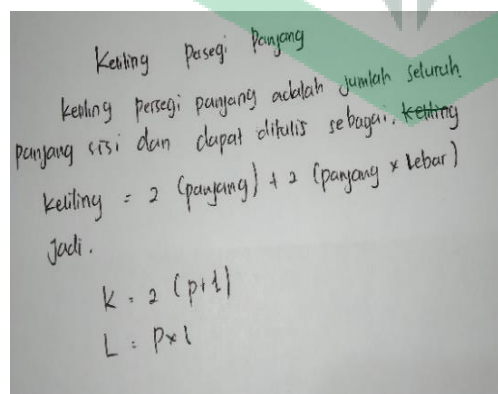 Keliling Persegi Panjang
keliling persegi panjang adalah jumlah seluruh
panjang sisi dan dapat ditulis sebagai. keliling
keliling = 2 (panjang) + 2 (panjang x Lebar)
Jadi.
K = 2 (p+l)
L = P x l